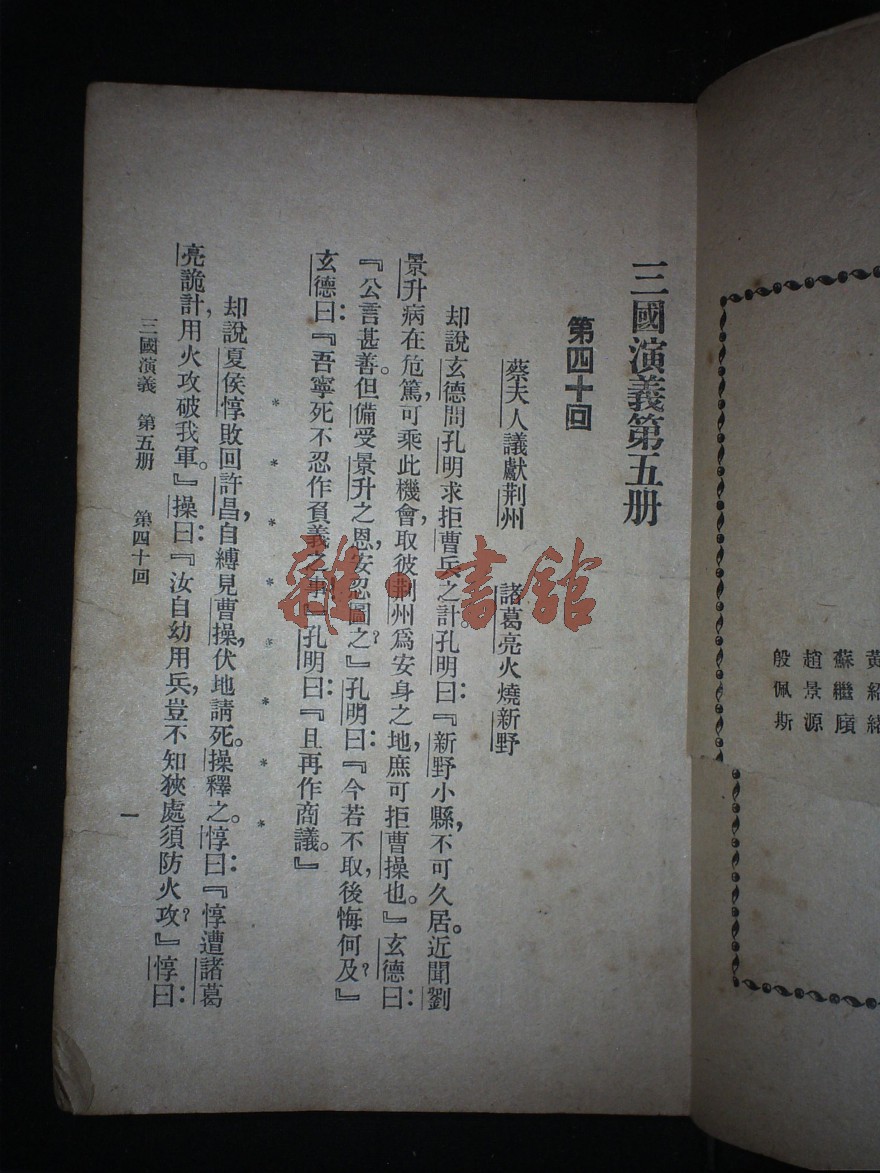 黃紹緒
蘇繼廎
趙景源
殷佩斯
三國演義第五册
第四十回
蔡夫人議獻荆州　諸葛亮火燒新野
却說玄德問孔明求拒曹兵之計。孔明曰：『新野小縣，不可久居。近聞劉
景升病在危篤，可乘此機會，取彼荆州爲安身之地，庶可拒曹操也。』玄德曰：
『公言甚善。但備受景升之恩，安忍圖之？』孔明曰：『今若不取，後悔何及？』
玄德曰：『吾寧死不忍作負義之事。』孔明曰：『且再作商議。』
* * * * * * * *
却說夏侯惇敗回許昌，自縛見曹操，伏地請死。操釋之。惇曰：『惇遭諸葛
亮詭計，用火攻破我軍。』操曰：『汝自幼用兵，豈不知狹處須防火攻？』惇曰
三國演義　第五册　第四十回
一
雜·書館